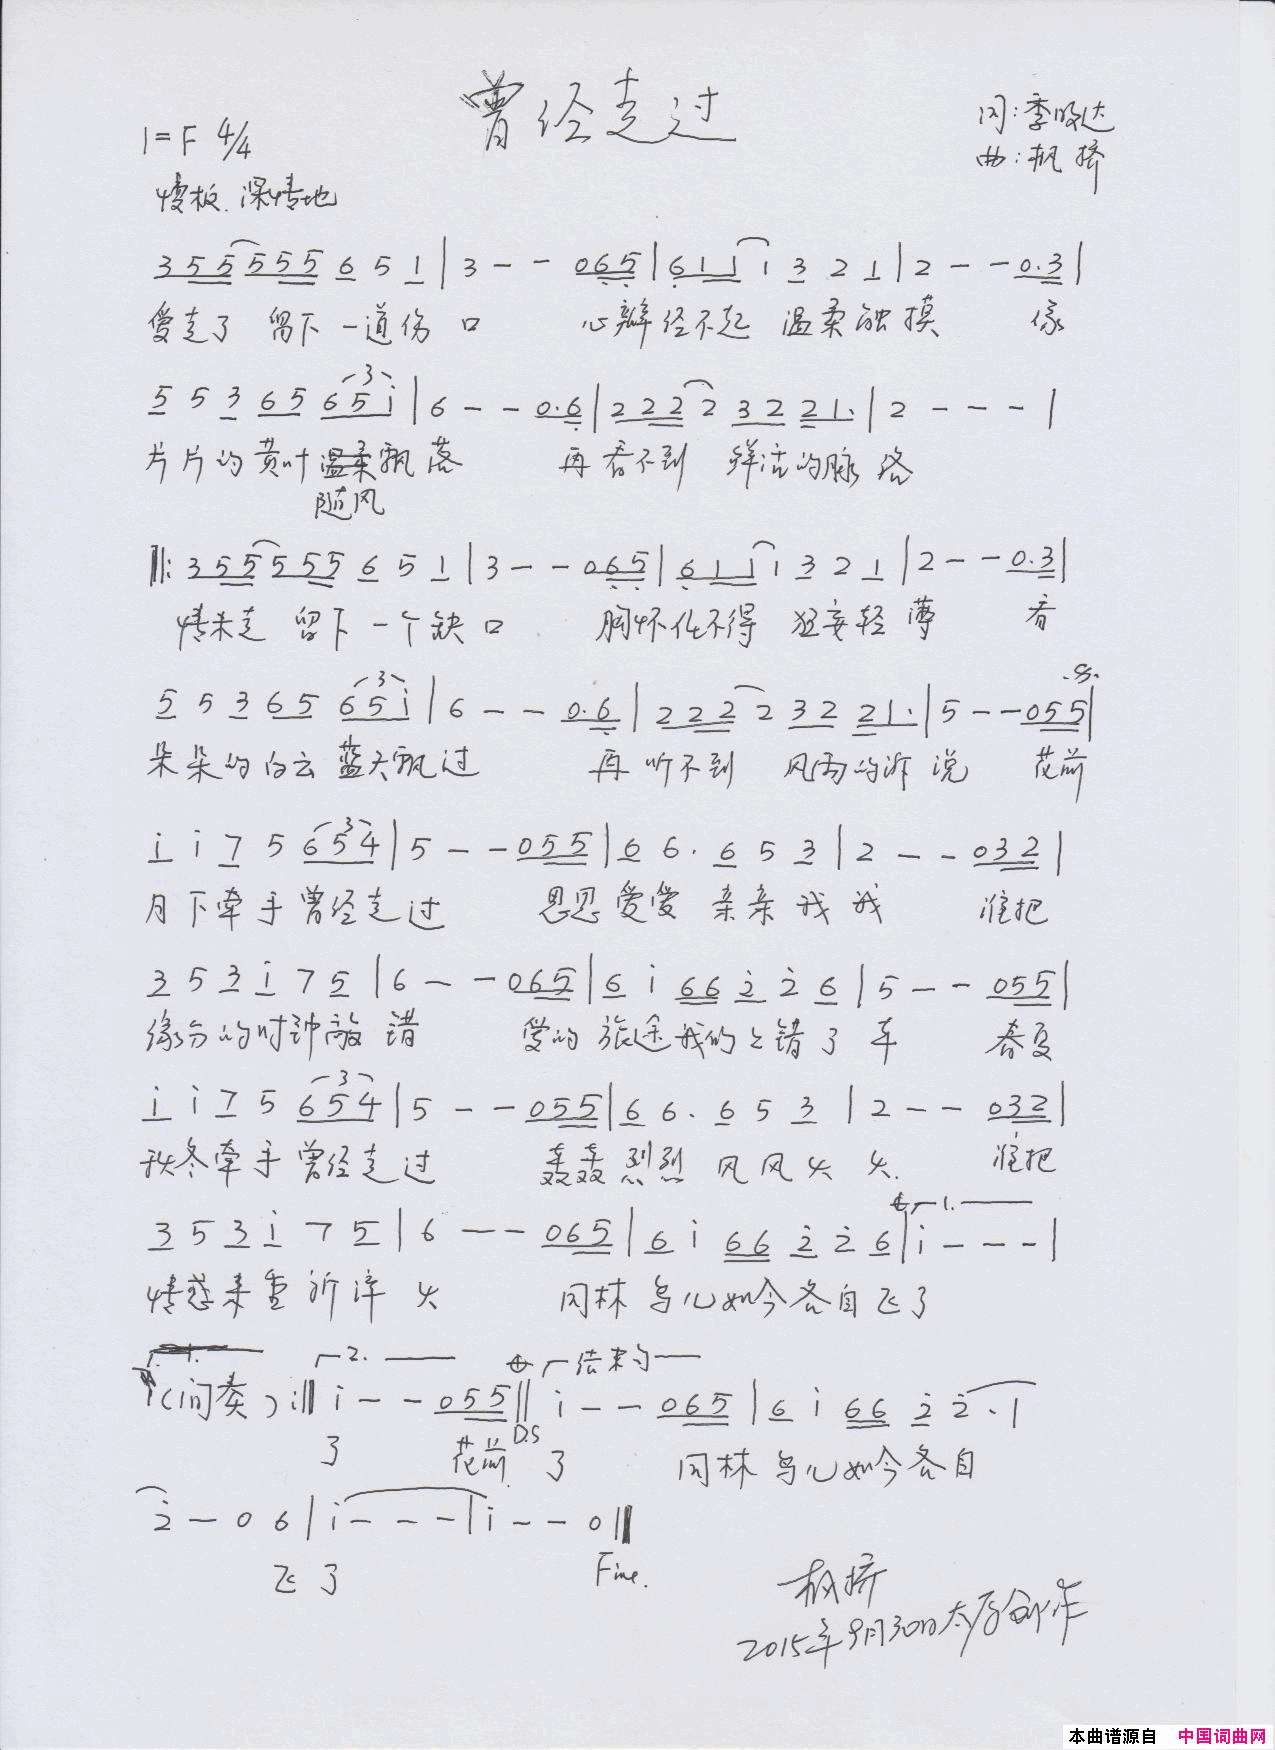 曾经走过
1=F 4/4
词:季明达
曲:枫桥
慢板.深情地
3 5 5 5 5 5 6 5 1 | 3 - - 0 6 5 | 6 1 1 1 3 2 1 | 2 - - 0.3 |
爱走了 留下一道伤口 心瓣经不起 温柔触摸 像
5 5 3 6 5 6 5 i | 6 - - 0.6 | 2 2 2 2 3 2 2 1. | 2 - - - |
片片的黄叶温柔飘落 再看不到 鲜活的脉络
随风
‖: 3 5 5 5 5 5 6 5 1 | 3 - - 0 6 5 | 6 1 1 1 3 2 1 | 2 - - 0.3 |
情未走 留下一个缺口 胸怀化不得 狂妄轻薄 看
5 5 3 6 5 6 5 i | 6 - - 0.6 | 2 2 2 2 3 2 2 1. | 5 - - 0 5 5 |
朵朵的白云蓝天飘过 再听不到 风雨的诉说 花前
i i 7 5 6 5 4 | 5 - - 0 5 5 | 6 6. 6 5 3 | 2 - - 0 3 2 |
月下牵手曾经走过 恩恩爱爱 亲亲我我 谁把
3 5 3 i 7 5 | 6 - - 0 6 5 | 6 i 6 6 2 2 6 | 5 - - 0 5 5 |
缘分的时钟敲错 爱的旅途我的上错了车 春夏
i i 7 5 6 5 4 | 5 - - 0 5 5 | 6 6. 6 5 3 | 2 - - 0 3 2 |
秋冬牵手曾经走过 轰轰烈烈 风风火火. 谁把
1.
3 5 3 i 7 5 | 6 - - 0 6 5 | 6 i 6 6 2 2 6 | i - - - |
情惑来重 火 同林鸟儿如今各自飞了
1. 2. 结束句
(间奏) :‖ i - - 0 5 5 ‖ i - - 0 6 5 | 6 i 6 6 2 2. |
了 花前 D.S 了 同林鸟儿如今各自
2 - 0 6 | i - - - | i - - 0 ‖
飞了 Fine.
枫桥
2015年9月30日太原创作
本曲谱源自 中国词曲网